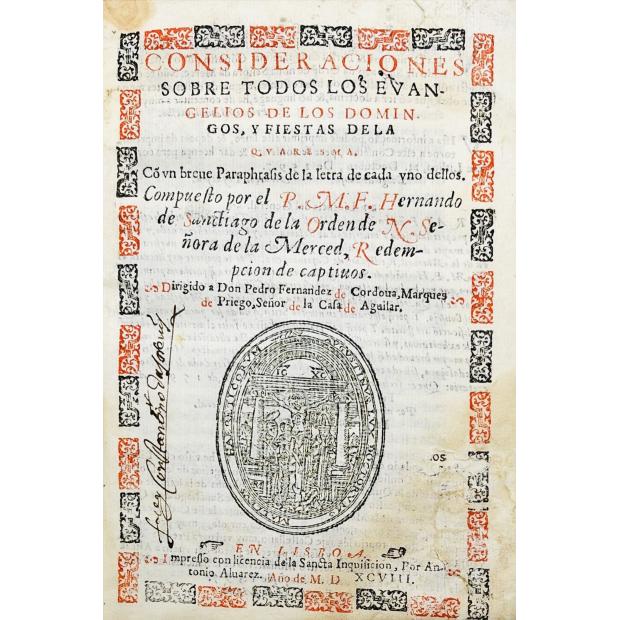 CONSIDERACIONES
SOBRE TODOS LOS EVAN-
GELIOS DE LOS DOMIN-
GOS, Y FIESTAS DELA
QVARESMA.
Cõ vn breue Paraphrasis de la letra de cada vno dellos.
Compuesto por el P. M. F. Hernando
de Sanctiago de la Orden de N. Se-
ñora de la Merced, Redem-
pcion de captiuos.
Dirigido a Don Pedro Fernandez de Cordoua, Marques
de Priego, Señor de la Casa de Aguilar.
EN LISBOA.
Impresso con licencia de la Sancta Inquisicion, Por An-
tonio Aluarez. Año de M. D XCVIII.